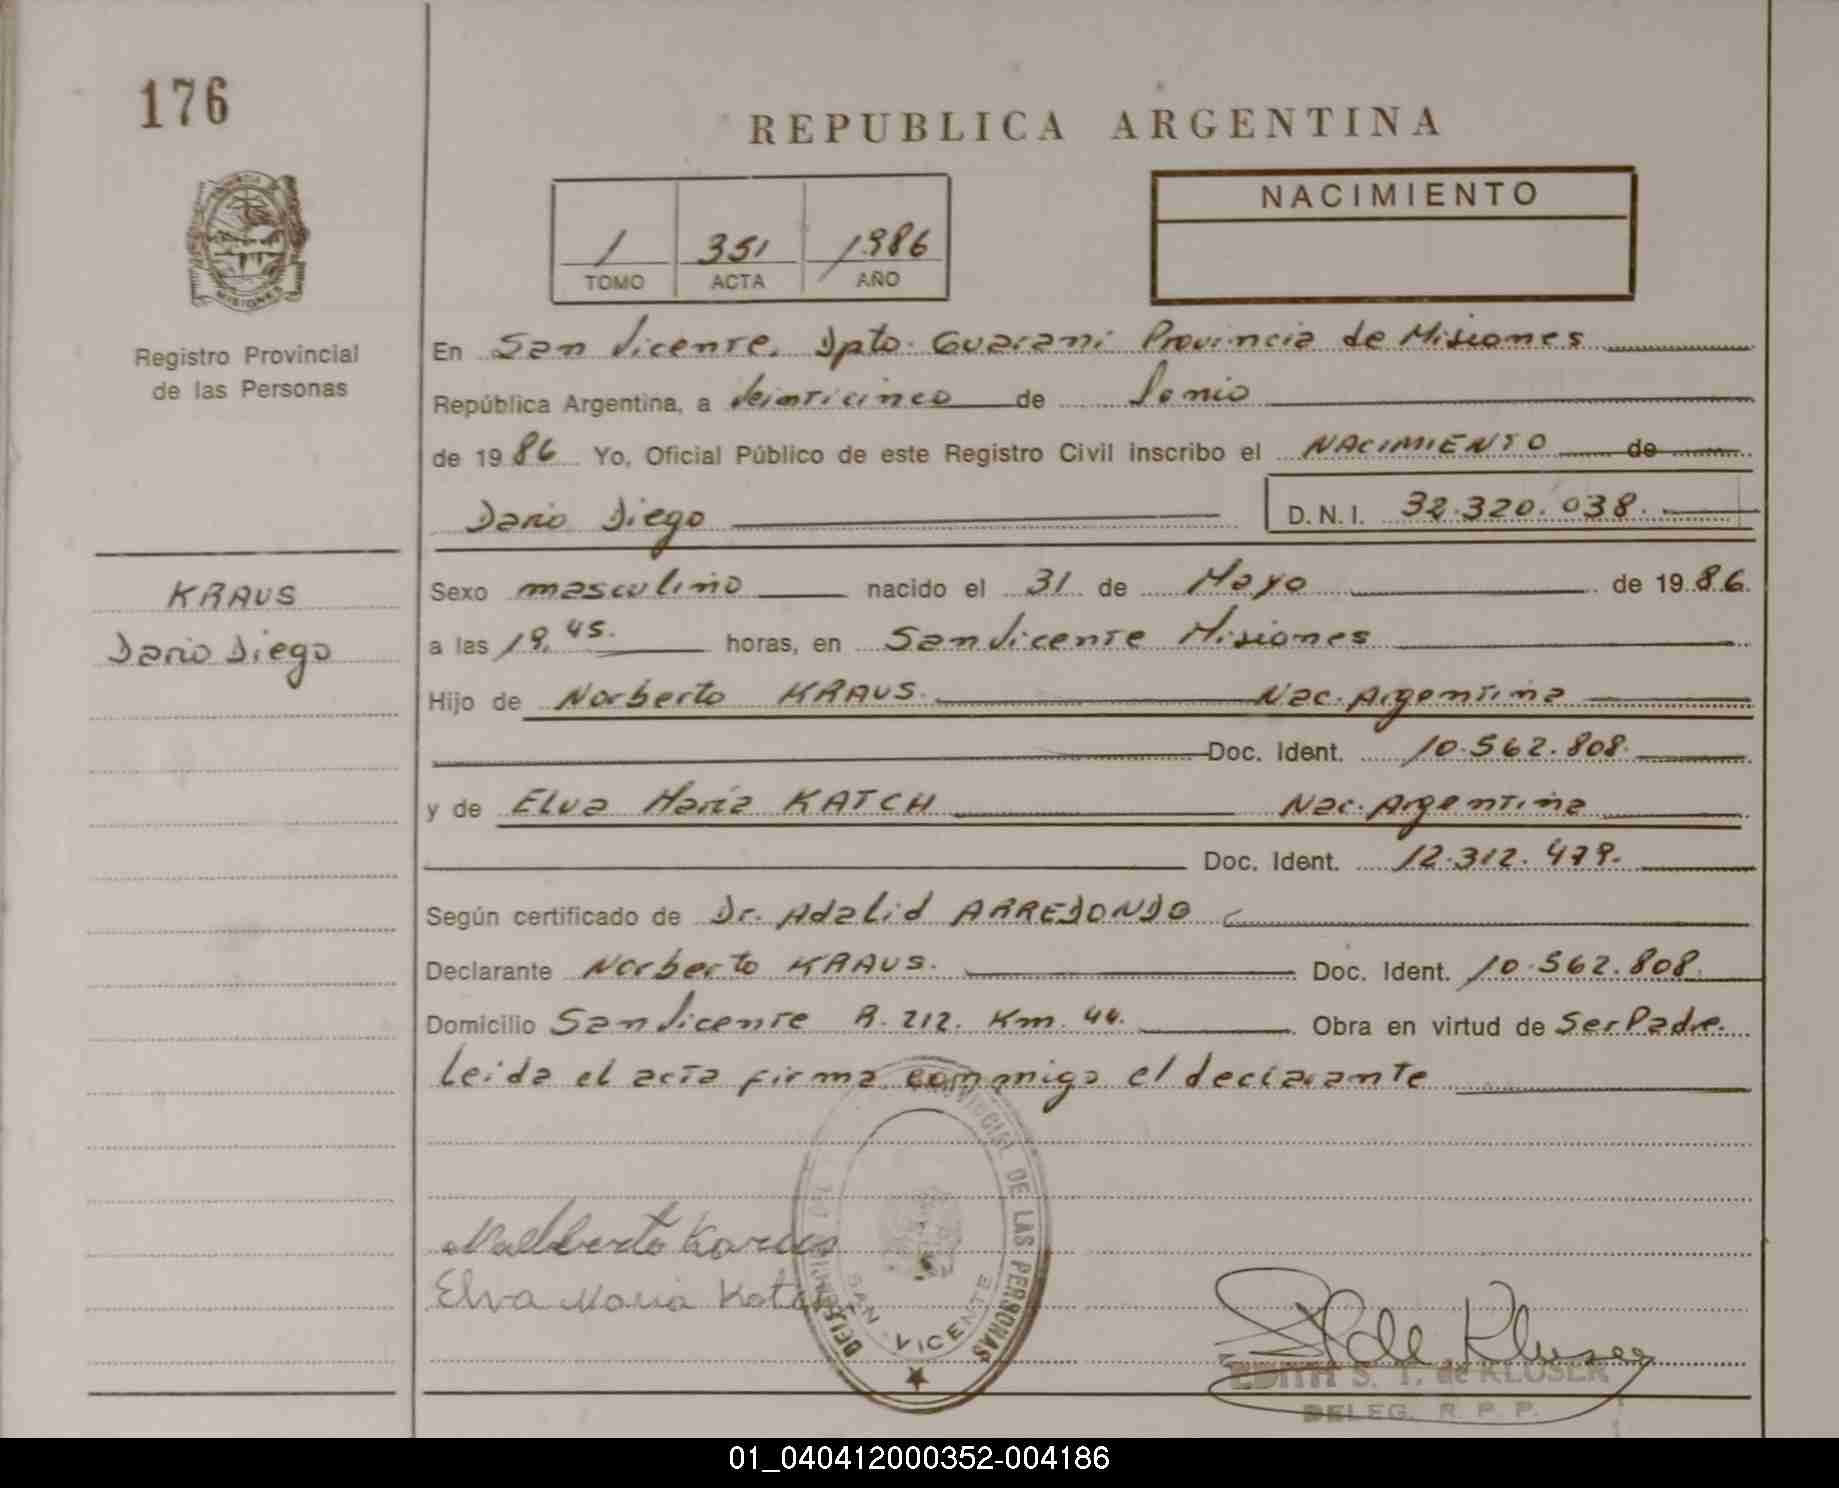 176
REPUBLICA ARGENTINA
PROVINCIA DE MISIONES
Registro Provincial
de las Personas
1 351 1986
TOMO ACTA AÑO
NACIMIENTO
En San Vicente, Dpto. Guarani Provincia de Misiones
República Argentina, a Veinticinco de Junio
de 1986 Yo, Oficial Público de este Registro Civil inscribo el NACIMIENTO de
Dario Diego D.N.I. 32.320.038.
KRAUS
Dario Diego
Sexo masculino nacido el 31 de Mayo de 1986.
a las 19,45. horas, en San Vicente Misiones
Hijo de Norberto KRAUS. Nac. Argentina
Doc. Ident. 10.562.808.
y de Elva Maria KATCH Nac. Argentina
Doc. Ident. 12.312.479.
Según certificado de Dr. Adalid ARREDONDO
Declarante Norberto KRAUS. Doc. Ident. 10.562.808.
Domicilio San Vicente R. 212. Km. 44. Obra en virtud de Ser Padre.
Leida el acta firma conmigo el declarante
PROVINCIAL DE LAS PERSONAS
SAN VICENTE
Elva Maria
de Kluser
EDITH S. T. de KLUSER
DELEG. R. P. P.
01_040412000352-004186